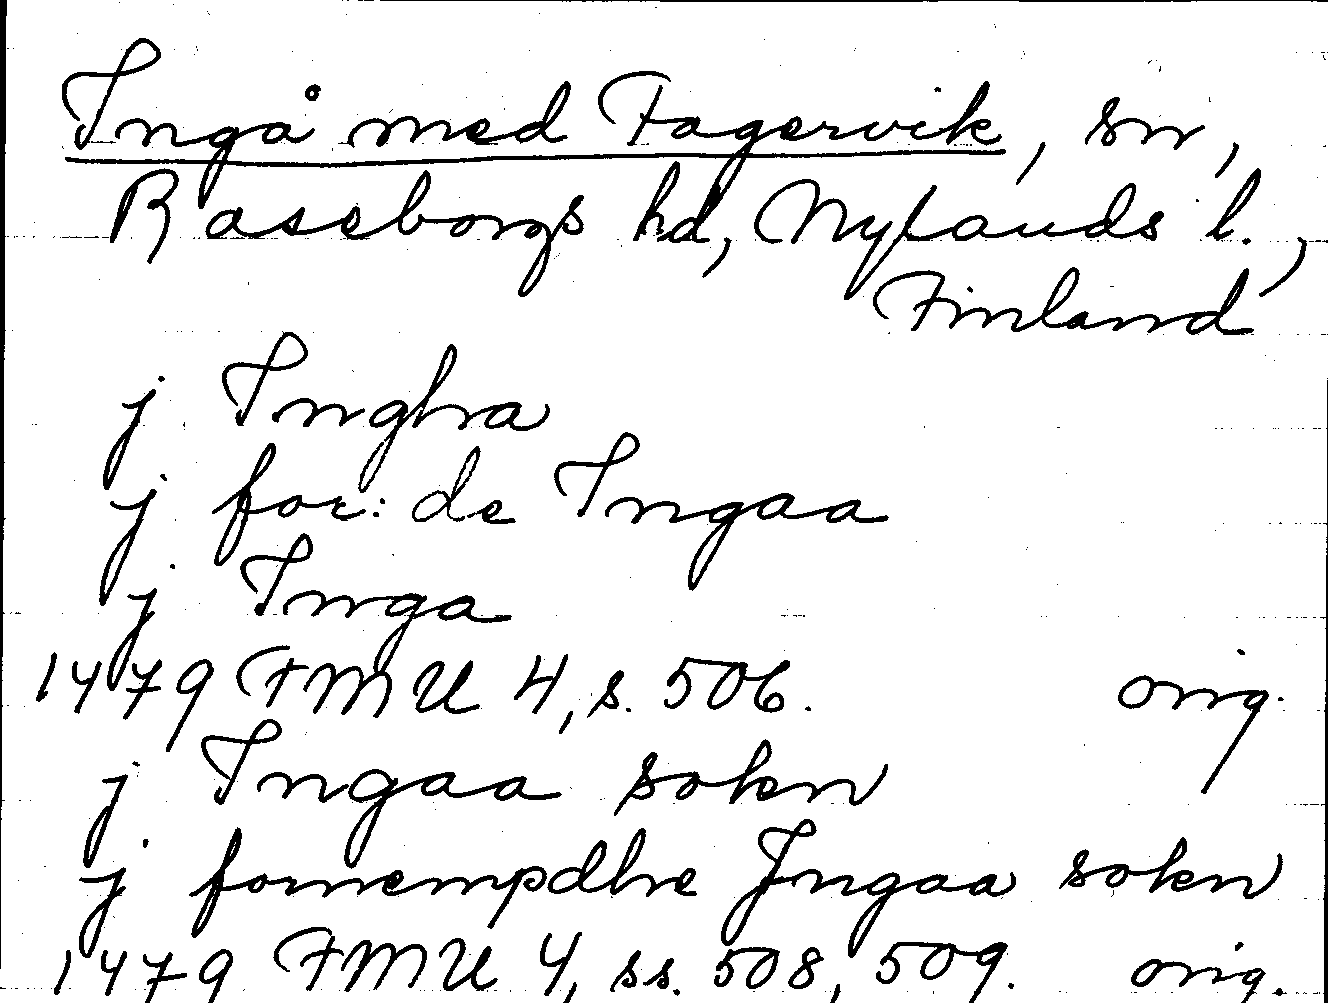 Ingå med Fagervik, sn,
Raseborgs hd, Nylands l.,
Finland
j Ingha
j for: de Ingaa
j Inga
1479 FMU 4, s. 506. orig.
j Ingaa sokn
j fornempdhe Jngaa sokn
1479 FMU 4, ss. 508, 509. orig.